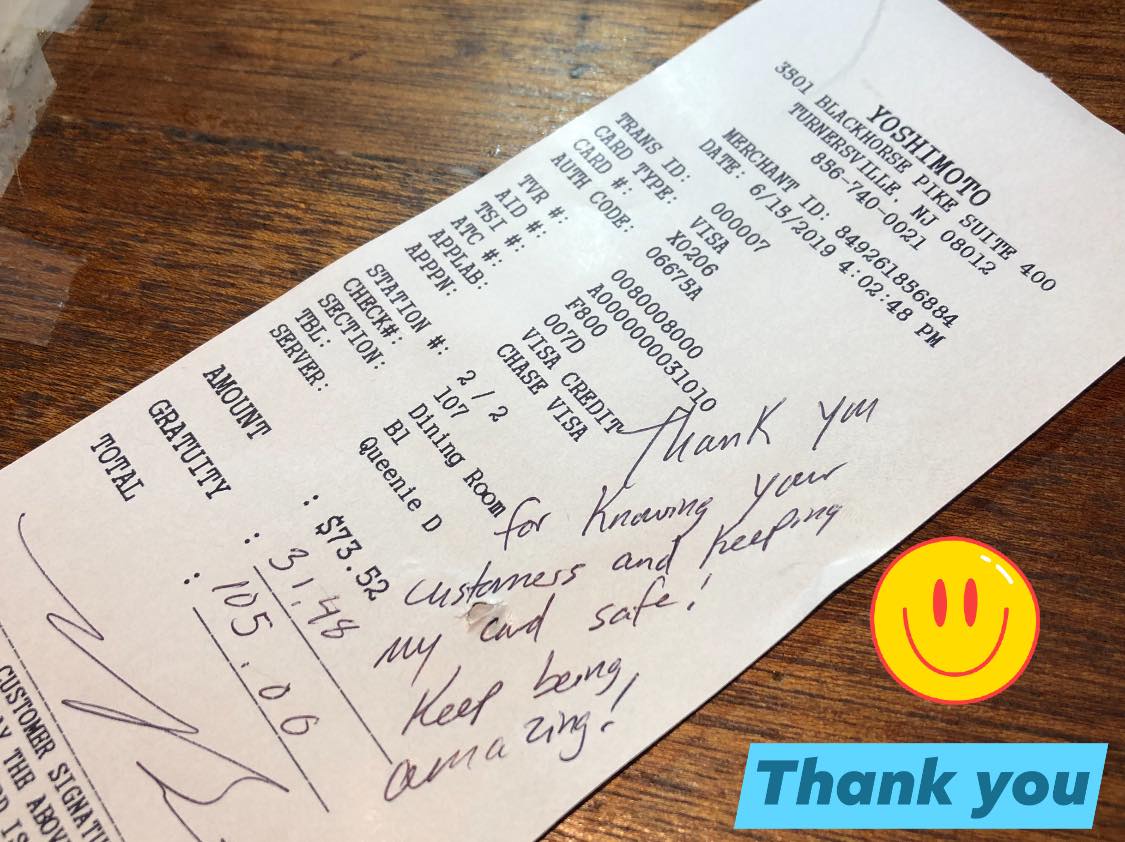 YOSHIMOTO
3501 BLACKHORSE PIKE SUITE 400
TURNERSVILLE, NJ 08012
856-740-0021
MERCHANT ID: 849261856884
DATE: 6/15/2019 4:02:48 PM
TRANS ID: 000007
CARD TYPE: VISA
CARD #: X0206
AUTH CODE: 06675A
TVR #: 0080008000
AID #: A0000000031010
TSI #: F800
ATC #: 007D
APPLAB: VISA CREDIT
APPPN: CHASE VISA
STATION #: 2 / 2
CHECK#: 107
SECTION: Dining Room
TBL: B1
SERVER: Queenie D
AMOUNT : $73.52
GRATUITY : 31.48
TOTAL : 105.00
CUSTOMER
THE ABOV
IS
Thank you
for knowing your
customers and keeping
my card safe!
Keep being
amazing!
Thank you